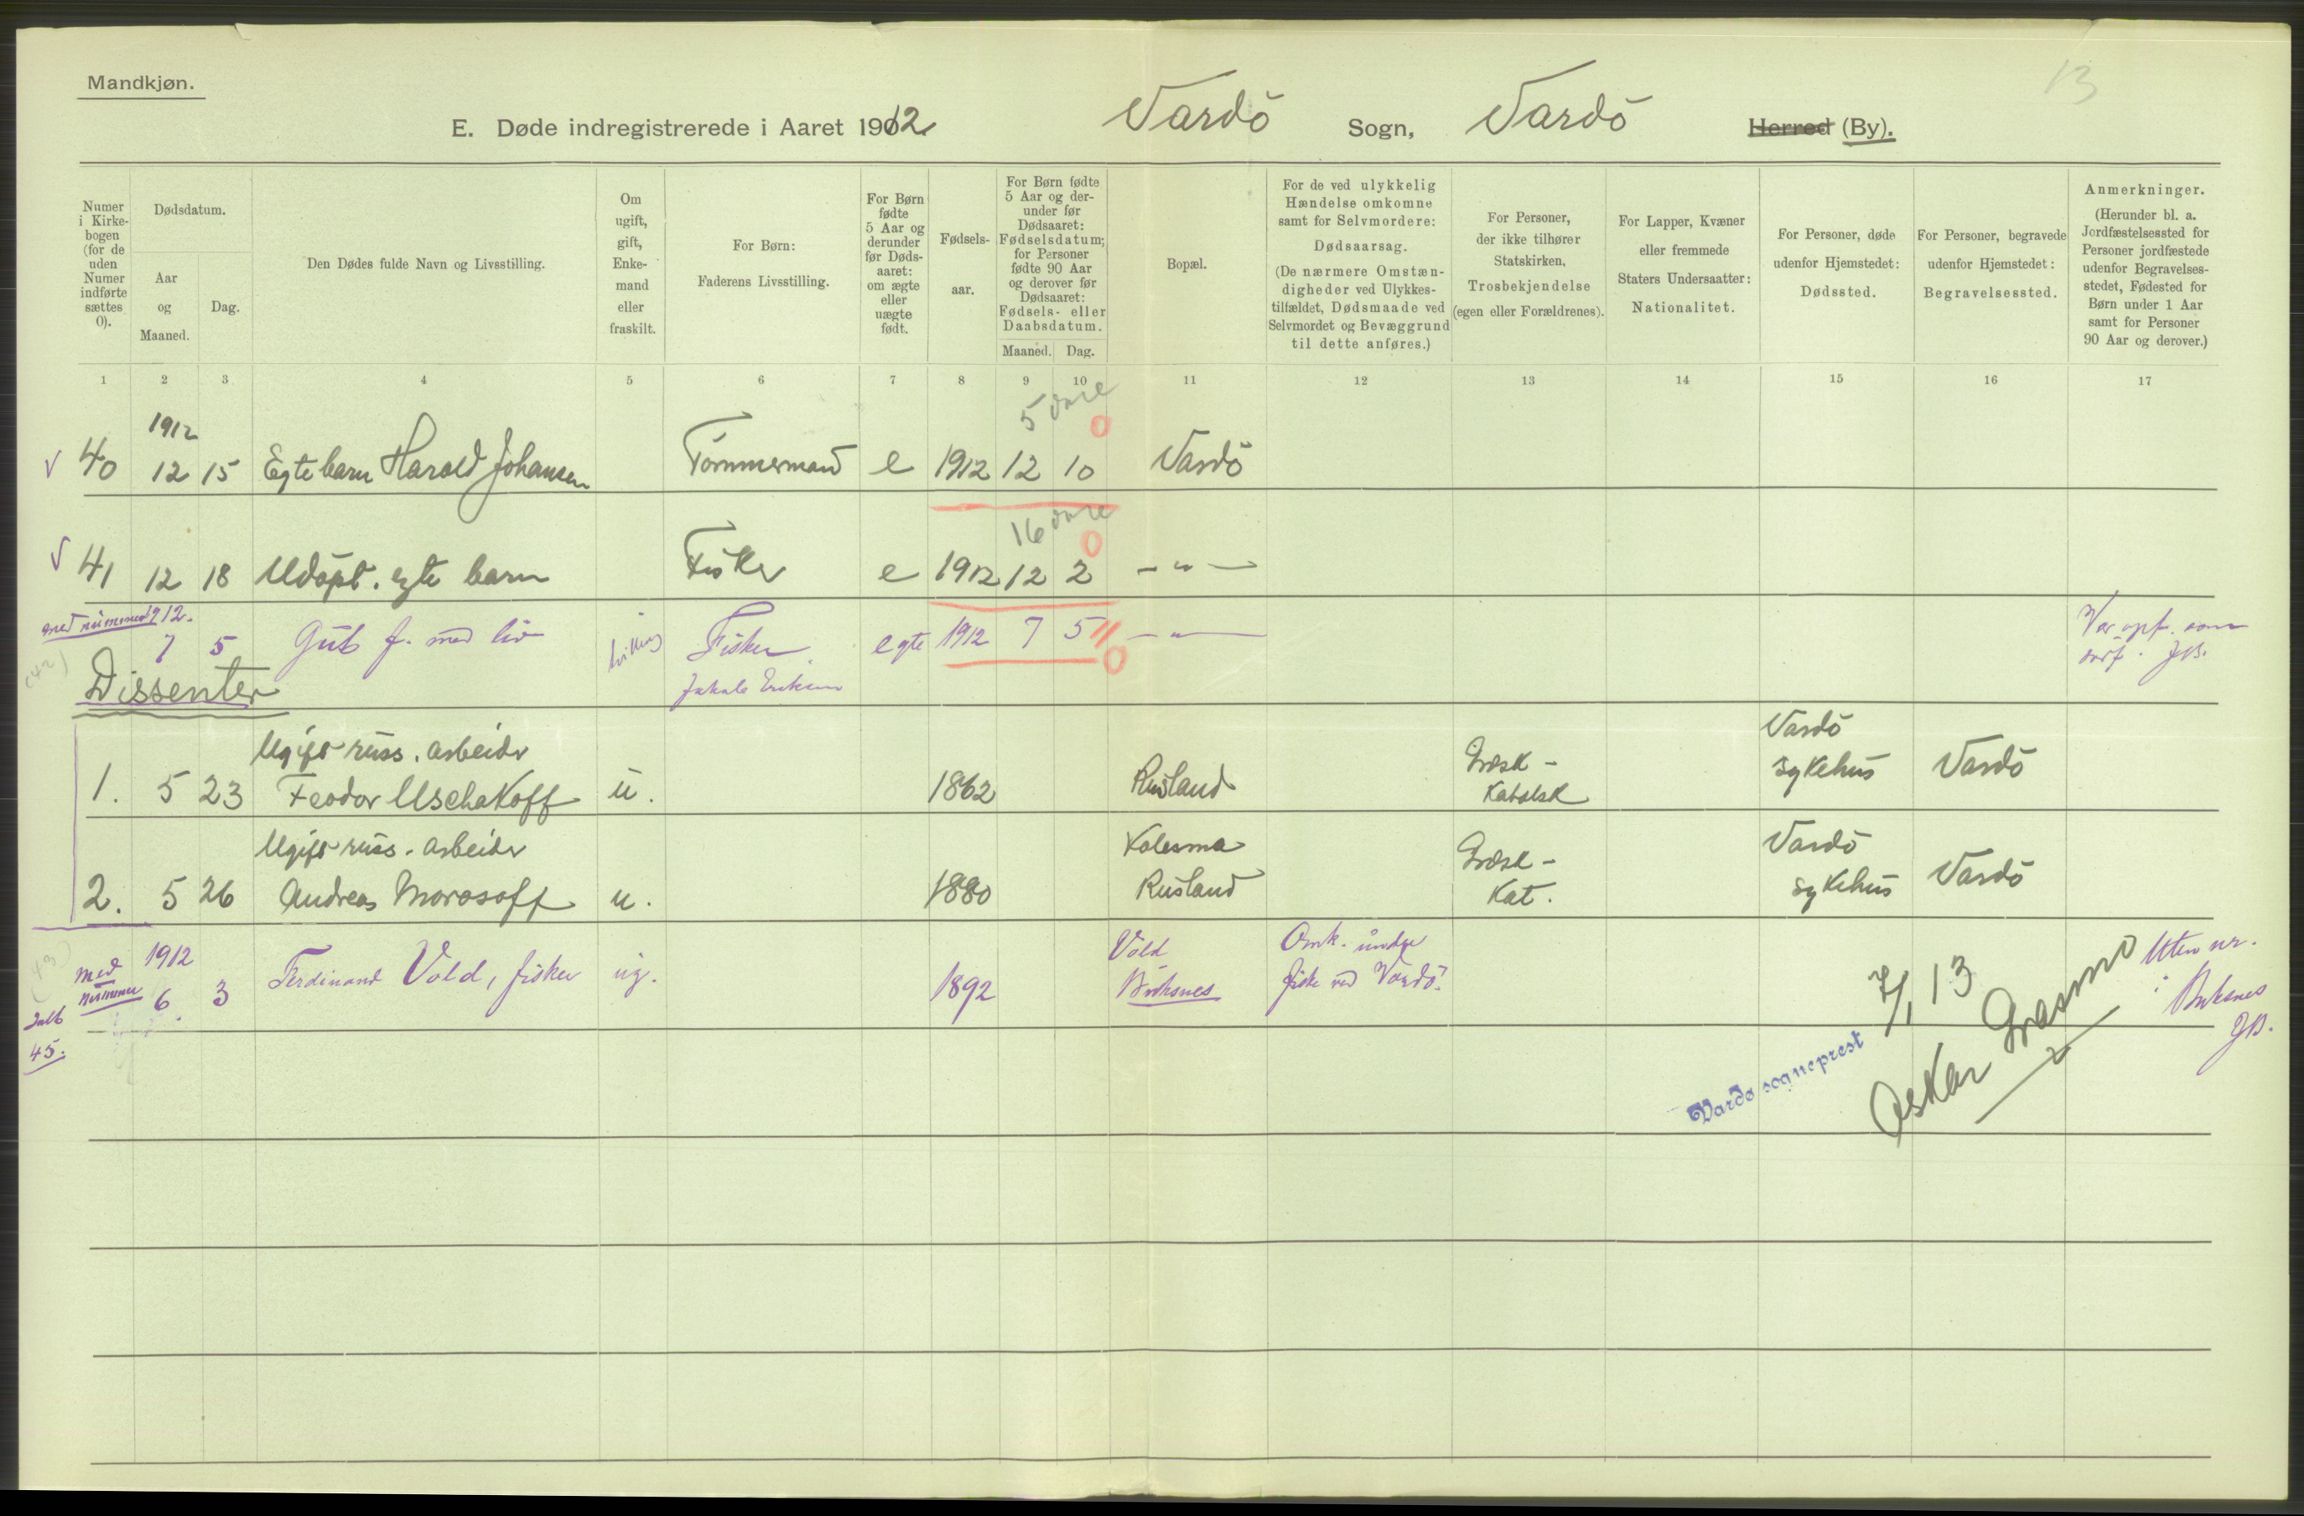 Mandkjøn.
13
E. Døde indregistrerede i Aaret 1912 Vardö Sogn, Vardö Herred (By).
Numer i Kirkebogen (for de uden Numer indførte sættes 0).
Dødsdatum.
Aar og Maaned.
Dag.
Den Dødes fulde Navn og Livsstilling.
Om ugift, gift, Enkemand eller fraskilt.
For Børn:
Faderens Livsstilling.
For Børn fødte 5 Aar og derunder før Dødsaaret: om ægte eller uægte født.
Fødselsaar.
For Børn fødte 5 Aar og derunder før Dødsaaret: Fødselsdatum; for Personer fødte 90 Aar og derover før Dødsaaret: Fødsels- eller Daabsdatum.
Maaned. Dag.
Bopæl.
For de ved ulykkelig Hændelse omkomne samt for Selvmordere:
Dødsaarsag.
(De nærmere Omstændigheder ved Ulykkestilfældet, Dødsmaade ved Selvmordet og Bevæggrund til dette anføres.)
For Personer, der ikke tilhører Statskirken,
Trosbekjendelse
(egen eller Forældrenes).
For Lapper, Kvæner eller fremmede Staters Undersaatter:
Nationalitet.
For Personer, døde udenfor Hjemstedet:
Dødssted.
For Personer, begravede udenfor Hjemstedet:
Begravelsessted.
Anmerkninger.
(Herunder bl. a. Jordfæstelsessted for Personer jordfæstede udenfor Begravelsesstedet, Fødested for Børn under 1 Aar samt for Personer 90 Aar og derover.)
1 2 3 4 5 6 7 8 9 10 11 12 13 14 15 16 17
5 dage
0
1912
40 12 15 Egte barn Harald Johansen Tömmermand e 1912 12 10 Vardö
16 dage
0
41 12 18 Udöpt. egte barn Fisker e 1912 12 2 — " —
med nummer 1912.
(42) 7 5 Gut f. med liv tvilling Fisker egte 1912 7 5 — " — Var opf. som
0
Jakob Eriksen
dødf. JB.
Dissenter
Ugift russ. arbeider Græsk- Vardö
1. 5 23 Feodor Uschakoff u. 1862 Rusland Katolsk sykehus Vardö
Ugift russ. arbeider Kolesma Græsk- Vardö
2. 5 26 Andreas Morosoff u. 1880 Rusland Kat. sykehus Vardö
(43) med 1912 Vold Omk. under Uten nr.
nummer 6. 3 Ferdinand Vold, fisker ug. 1892 Buksnes fiske ved Vardö. i Buksnes
JB.
45.
7/1 13
Vardø sogneprest
Oskar Grasmo